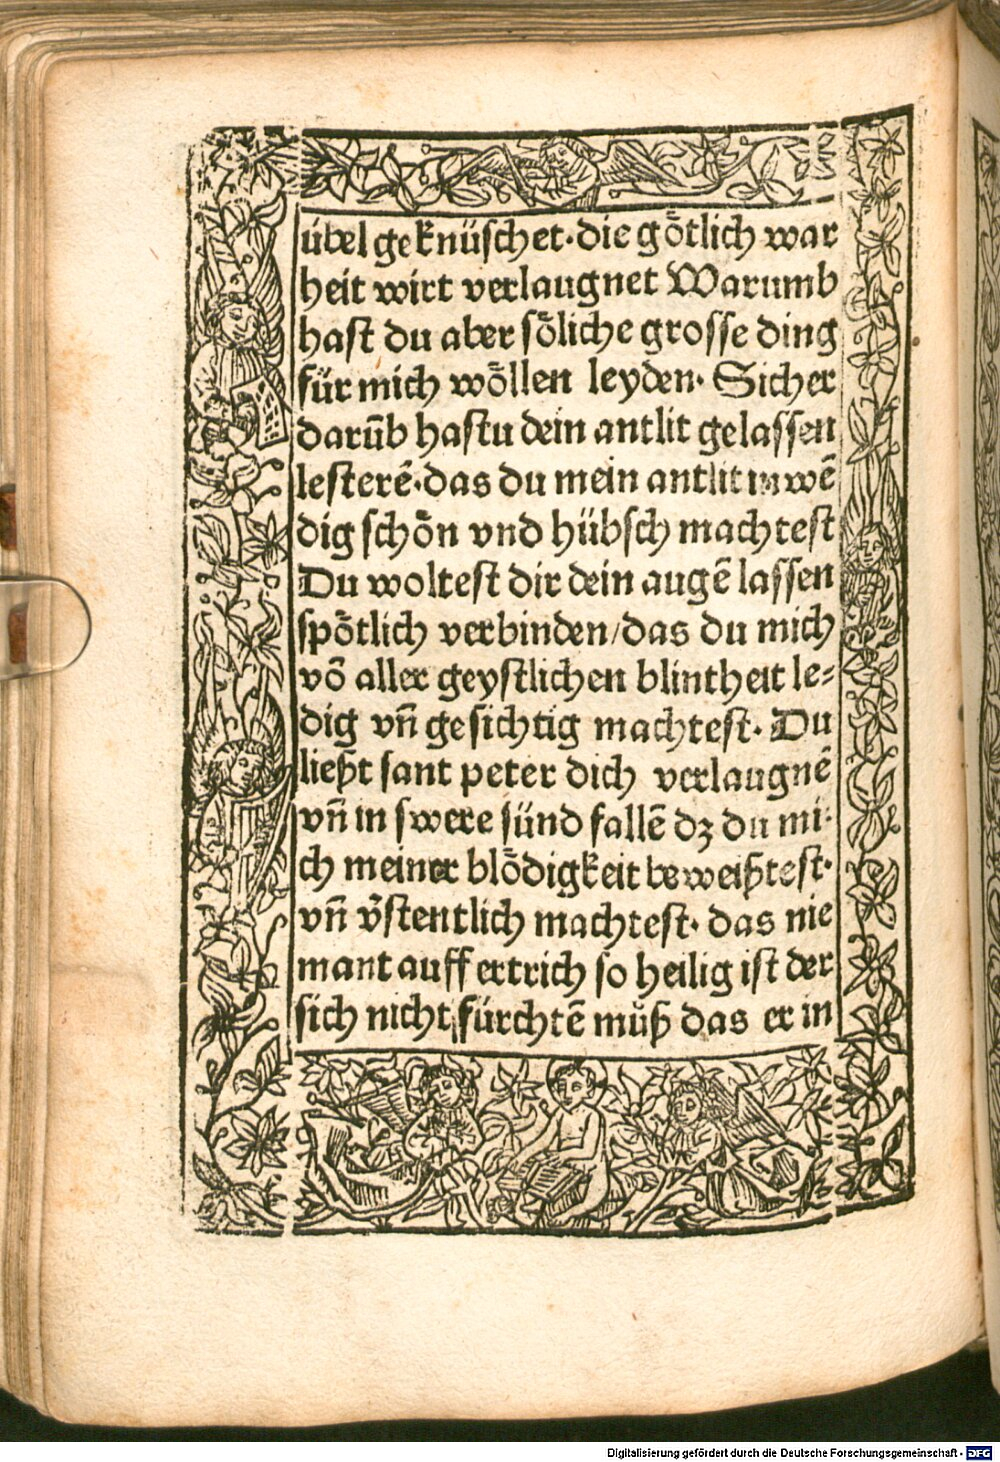 übel geknüschet·die gȯ̈tlich war
heit wirt verlaugnet Warumb
hast du aber sȯ̈liche grosse ding
für mich wȯ̈llen leyden· Sicher
darūb hastu dein antlit gelassen
lesterē·das du mein antlit in wē
dig schȯ̈n vnd hübsch machtest
Du woltest dir dein augē lassen
spȯ̈tlich verbinden/das du mich
vō aller geystlichen blintheit le⸗
dig vn̄ gesichtig machtest· Du
ließt sant peter dich verlaugnē
vn̄ in swere sünd fallē dz du mi⸗
ch meiner blȯ̈digkeit beweißtest·
vn̄ v̓stentlich machtest· das nie
mant auff ertrich so heilig ist der
sich nicht fürchtē můß das er in
Digitalisierung gefördert durch die Deutsche Forschungsgemeinschaft - DFG